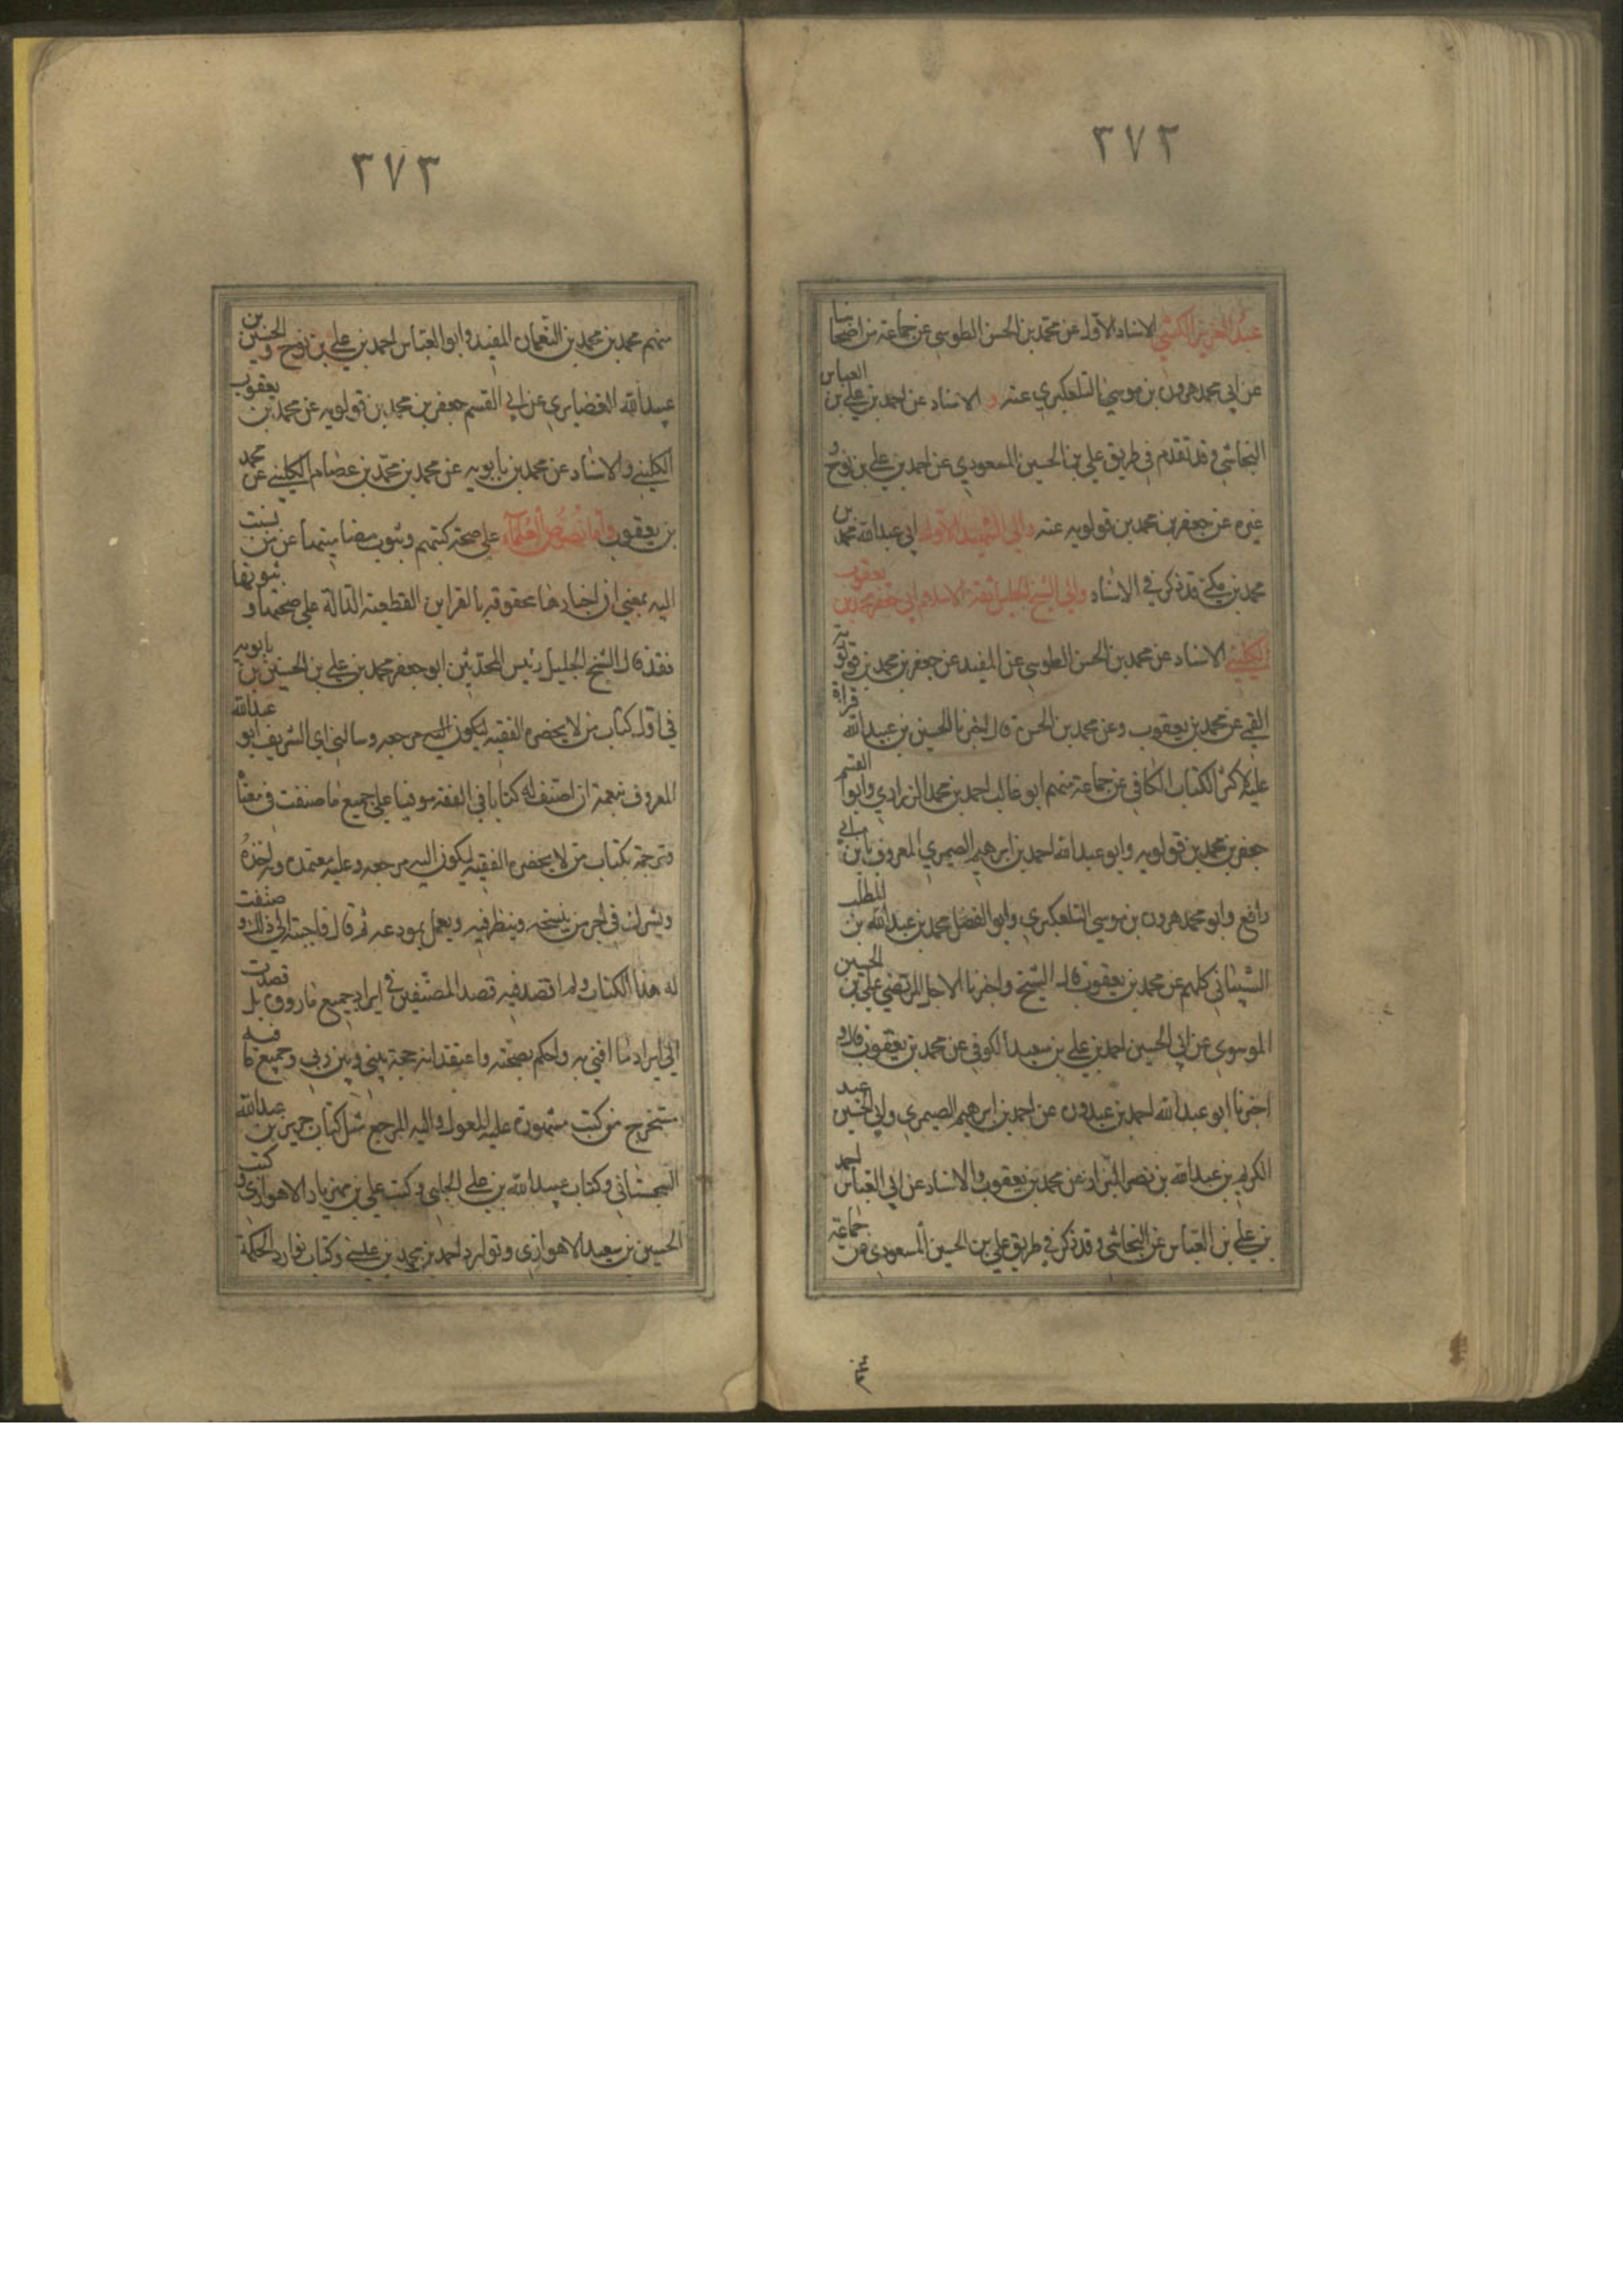 ٣٧٢
عبد العزيز الكشي الاسناد الاول عن محمد بن الحسن الطوسي عن جماعة من اصحابنا
عن ابي محمد هرون بن موسى التلعكبري عنه و الاسناد عن احمد بن علي بن العباس
النجاشي وقد تقدم في طريق علي بن الحسين المسعودي عن احمد بن علي بن نوح و
غيره عن جعفر بن محمد بن قولويه عنه والى الشهيد الاول ابي عبد الله محمد بن
محمد بن مكي قد ذكر في الاسناد والى الشيخ الجليل ثقة الاسلام ابي جعفر محمد بن يعقوب
الكليني الاسناد عن محمد بن الحسن الطوسي عن المفيد عن جعفر بن محمد بن قولويه
القمي عن محمد بن يعقوب وعن محمد بن الحسن قال اخبرنا الحسين بن عبيد الله قراءة
عليه اكثر الكتاب الكافي عن جماعة منهم ابو غالب احمد بن محمد الزراري وابو القسم
جعفر بن محمد بن قولويه وابو عبد الله احمد بن ابرهيم الصيمري المعروف بابن ابي
رافع وابو محمد هرون بن موسى التلعكبري وابو الفضل محمد بن عبد الله بن المطلب
الشيباني كلهم عن محمد بن يعقوب قال الشيخ واخبرنا الاجل المرتضي علي بن الحسين
الموسوي عن ابي الحسين احمد بن علي بن سعيد الكوفي عن محمد بن يعقوب قال و
اخبرنا ابو عبد الله احمد بن عبدون عن احمد بن ابرهيم الصيمري وابي الحسين عبد
الكريم بن عبد الله بن نصر البزاز عن محمد بن يعقوب والاسناد عن ابي العباس احمد
بن علي بن العباس عن النجاشي وقد ذكر في طريق علي بن الحسين المسعودي عن جماعة
٣٧٣
منهم محمد بن محمد بن النعمان المفيد وابو العباس احمد بن علي بن نوح و الحسين بن
عبيد الله الغضايري عن ابي القسم جعفر بن محمد بن قولويه عن محمد بن يعقوب
الكليني والاسناد عن محمد بن بابويه عن محمد بن محمد بن عصام الكليني عن محمد
بن يعقوب واما نصوص العلماء على صحة كتبهم وثبوت مضامينها عن من نسبت
اليه بمعنى ان اخبارها محفوفة بالقراين القطعية الدالة على صحتها و ثبوتها
فقد قال الشيخ الجليل رئيس المحدثين ابو جعفر محمد بن علي بن الحسين بن بابويه
في اول كتاب من لا يحضره الفقيه ليكون اليه مرجعه وسالني اي الشريف ابو عبد الله
المعروف بنعمة ان اصنف له كتابا في الفقه موفيا على جميع ما صنفت في معناه
وترجمة بكتاب من لا يحضره الفقيه ليكون اليه مرجعه وعليه معتمده وبه اخذه
ويشرك في اجر من ينسخه وينظر فيه ويعمل بمودعه ثم قال فاجبته الى ذلك و صنفت
له هذا الكتاب ولم اقصد فيه قصد المصنفين في ايراد جميع ما رووه بل قصدت
الى ايراد ما افتي به واحكم بصحته واعتقد انه حجة بيني وبين ربي وجميع ما فيه
مستخرج من كتب مشهورة عليه المعول واليه المرجع مثل كتاب حريز بن عبد الله
السجستاني وكتاب عبيد الله بن علي الحلبي وكتب علي بن مهزيار الاهوازي و كتب
الحسين بن سعيد الاهوازي ونوادر احمد بن محمد بن عيسى وكتاب نوادر الحكمة